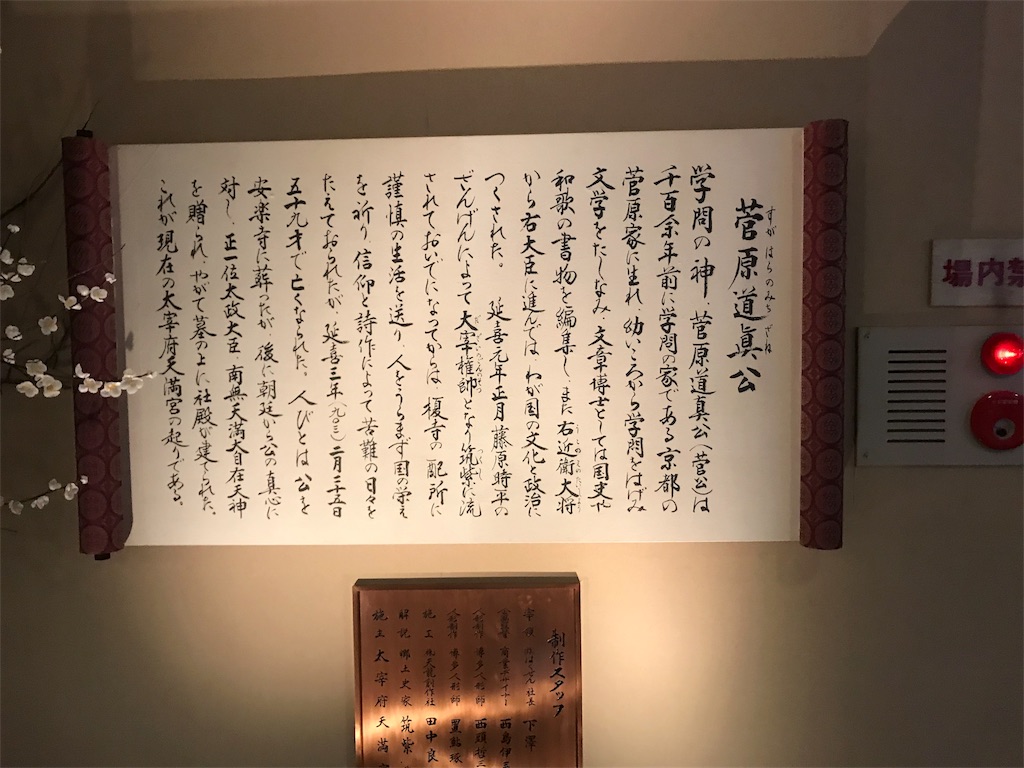 菅原道真公
すが はらのみち ざね
学問の神、菅原道真公(菅公)は
千百余年前に学問の家である京都の
菅原家に生れ、幼いころから学問をはげみ
文学をたしなみ、文章博士としては国史や
和歌の書物を編集し、また右近衛大将
から右大臣に進んでは、わが国の文化と政治に
つくされた。 延喜元年正月藤原時平の
ざんげんによって大宰権帥となり筑紫に流
されておいでになってからは、榎寺の配所に
謹慎の生活を送り、人をうらまず国の栄え
を祈り、信仰と詩作によって苦難の日々を
たえておられたが、延喜三年(九〇三)二月二十五日
五十九才で亡くなられた。人びとは公を
安楽寺に葬ったが、後に朝廷から公の真心に
対し、正一位太政大臣、南無天満大自在天神
を贈られ、やがて墓の上に社殿が建てられた。
これが現在の太宰府天満宮の起りである。
場内禁
制作スタッフ
社長 下澤
西島伊三
人形制作 博多人形師 西頭哲三
人形制作 博多人形師 置鮎琢
施工 田中良
解説 郷土史家 筑紫
施主 太宰府天満